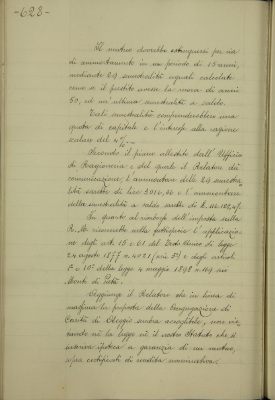 -623-
Il mutuo dovrebbe estinguersi per via
di ammortamento in un periodo di 15 anni,
mediante 29 semestralità uguali calcolate
come se il prestito avesse la mora di anni
50, ed un'ultima semestralità a saldo.
Tali semestralità comprenderebbero una
quota di capitale e l'interesse alla ragione
del 4%.-
Secondo il piano allestito dall'Ufficio
di Ragioneria e del quale il Relatore dà
comunicazione, l'ammontare delle 29 semestra-
lità sarebbe di lire e l'ammontare
della semestralità a saldo sarebbe di
In quanto al rimborso dell'imposta sulla
R. M. nella fattispecie l'applicazio-
ne degli art. 13 e 61 del Testo Unico di legge
24 agosto 1877 n. 4021 e degli articoli
della legge 4 maggio 1898 n. 169 sui
Monti di Pietà.
Aggiunge il Relatore che in linea di
massima la proposta della Congregazione di
Carità di Oleggio sembra accoglibile, non vie-
tando nè la legge nè il nostro Statuto che si
ipoteca a garanzia di un mutuo,
certificati di rendita nominativa.